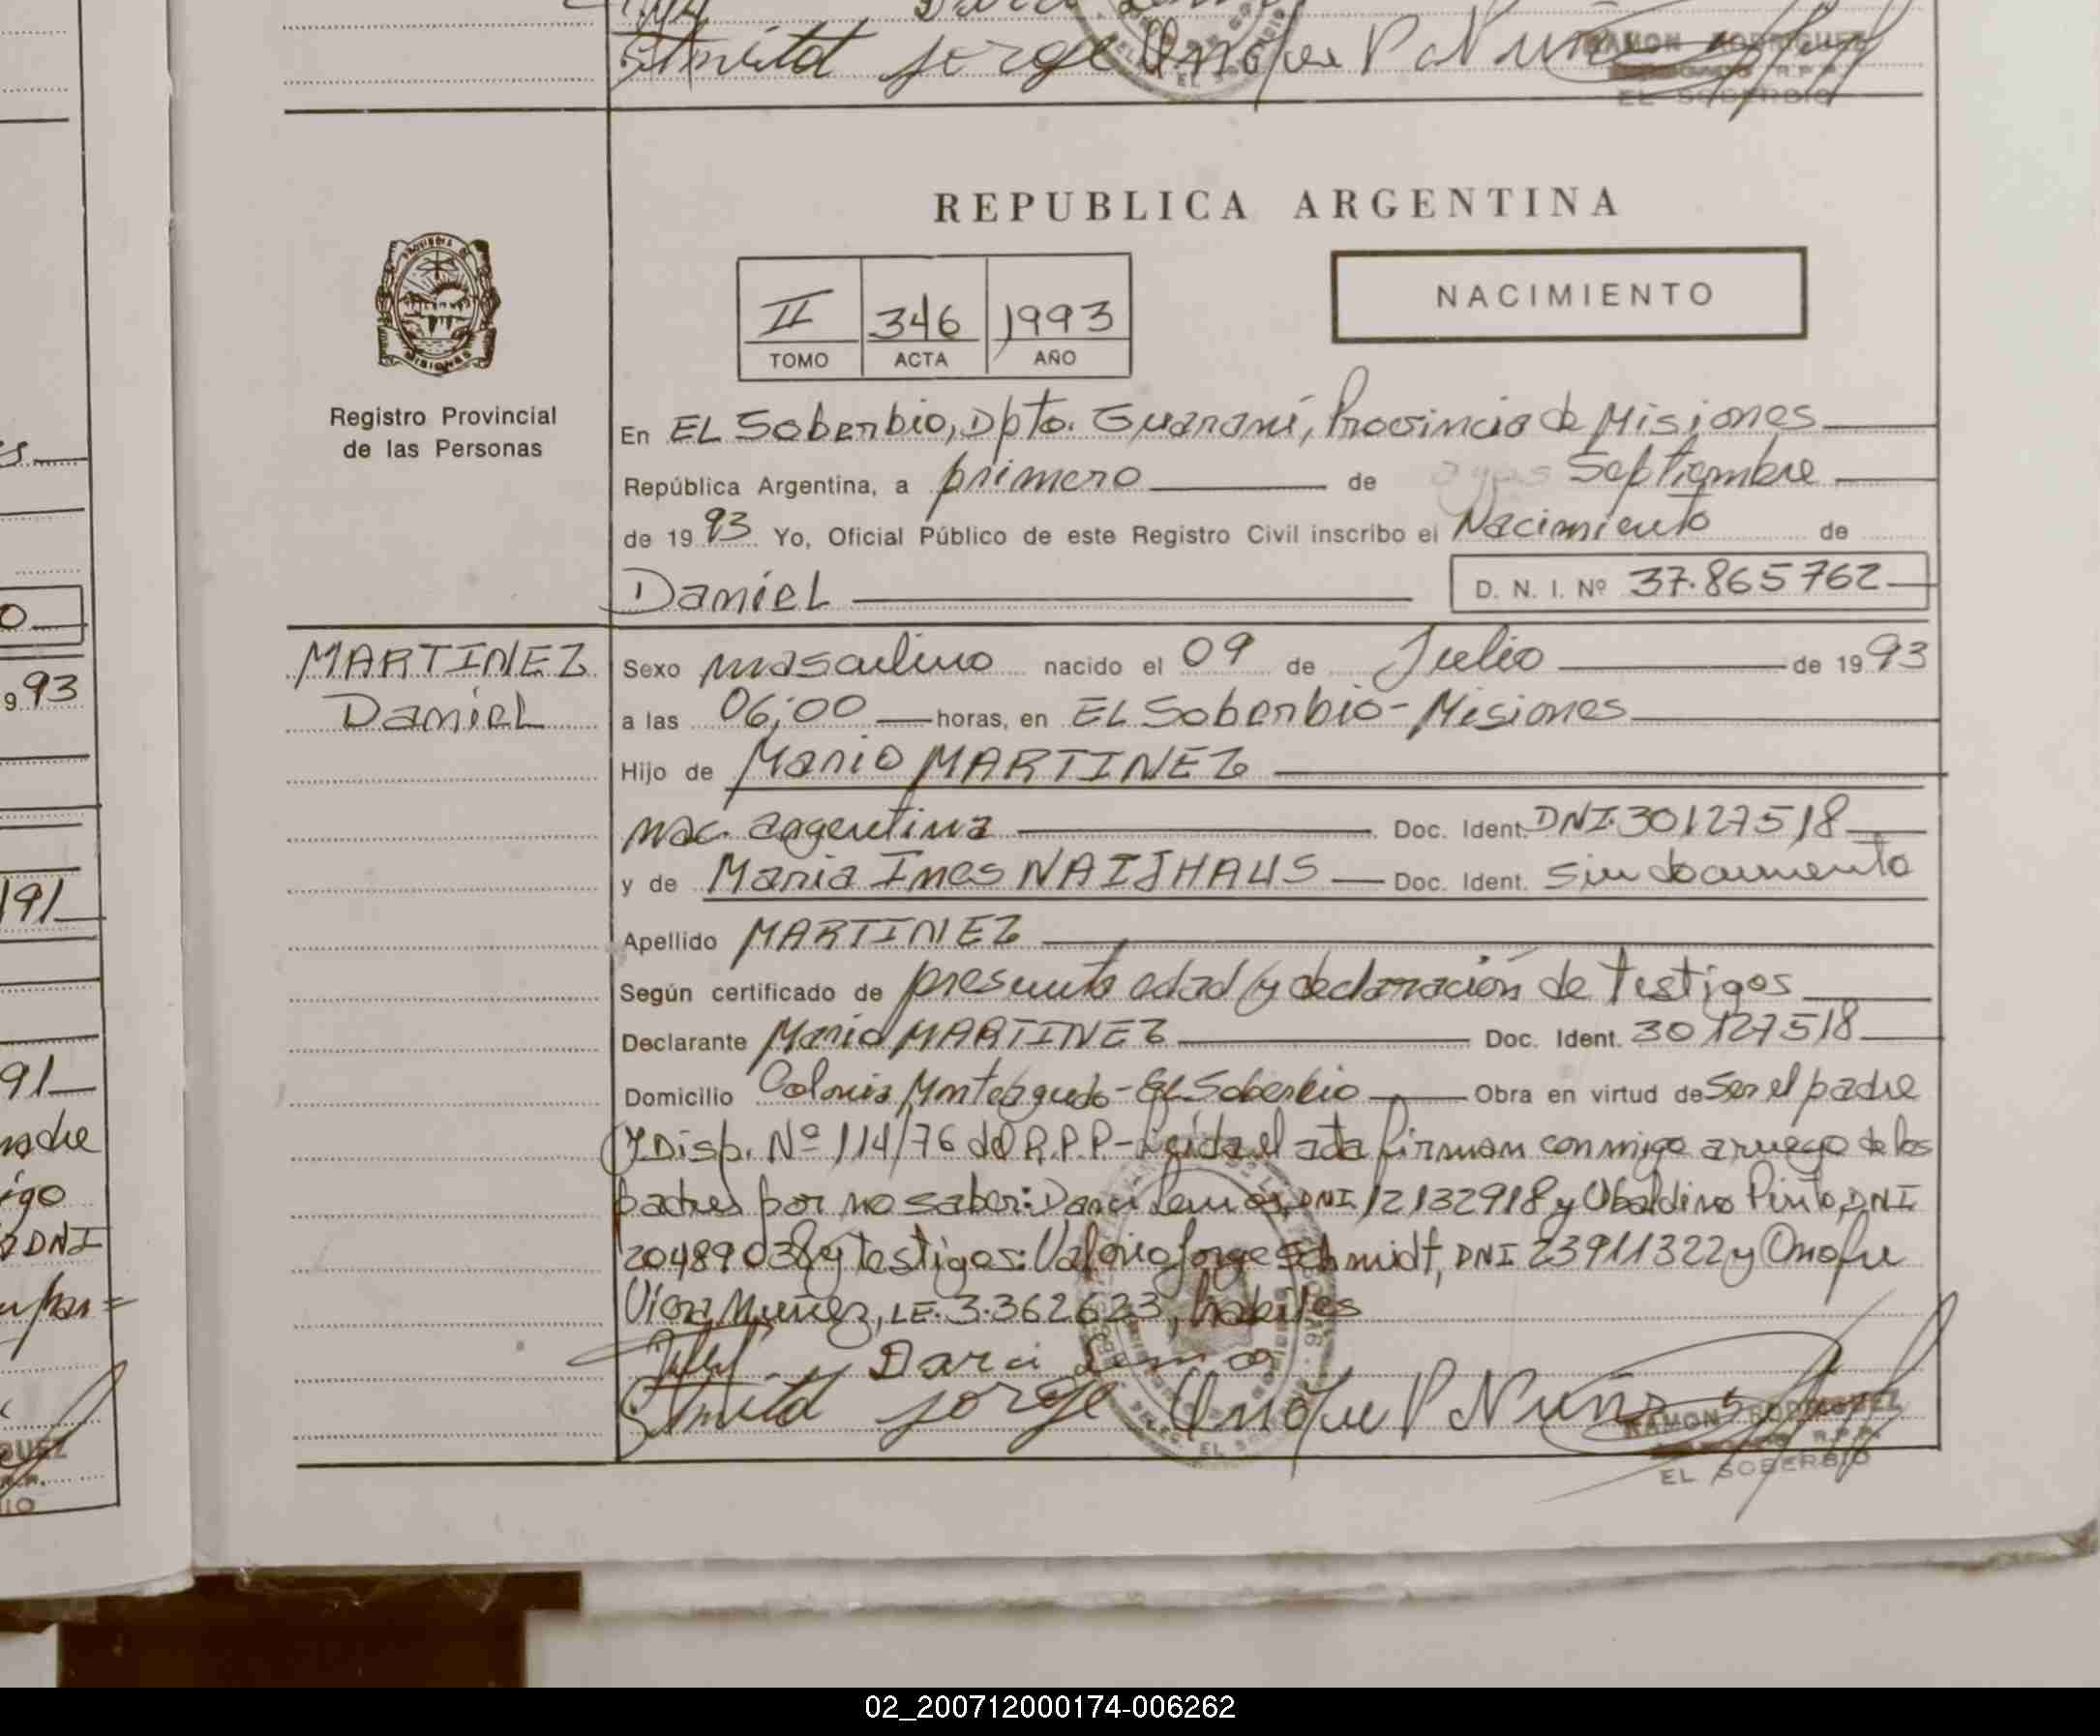 Stmild Jorge Onofre P Nuñes
RAMON RODRIGUEZ
R.P.P.
EL SOBERBIO
REPUBLICA ARGENTINA
II 346 1993
TOMO ACTA AÑO
NACIMIENTO
Registro Provincial
de las Personas
En EL Soberbio, Dpto. Guaraní, Provincia de Misiones
República Argentina, a primero de Septiembre
de 1993 Yo, Oficial Público de este Registro Civil inscribo el Nacimiento de
Daniel D. N. I. Nº 37.865762
MARTINEZ
Daniel
Sexo masculino nacido el 09 de Julio de 1993
a las 06:00 horas, en EL Soberbio - Misiones
Hijo de Mario MARTINEZ
nac. argentina Doc. Ident. DNI.30127518
y de Maria Ines NAIJHAUS Doc. Ident. sin documento
Apellido MARTINEZ
Según certificado de presunta edad y declaración de testigos
Declarante Mario MARTINEZ Doc. Ident. 30127518
Domicilio Colonia Monteagudo - EL Soberbio Obra en virtud de Ser el padre
y Disp. Nº 114/76 del R.P.P - Leida el acta firman conmigo a ruego de los
padres por no saber: Darci Lemos, DNI 12132918 y Ubaldino Pinto, DNI
20489038 y testigos: Valerio Jorge Schmidt, DNI 23911322 y Onofre
Viera Muñez, LE. 3.362623, habiles
Darci Lemos
Stmild Jorge Onofre P Nuñes
RAMON RODRIGUEZ
R.P.P.
EL SOBERBIO
02_200712000174-006262